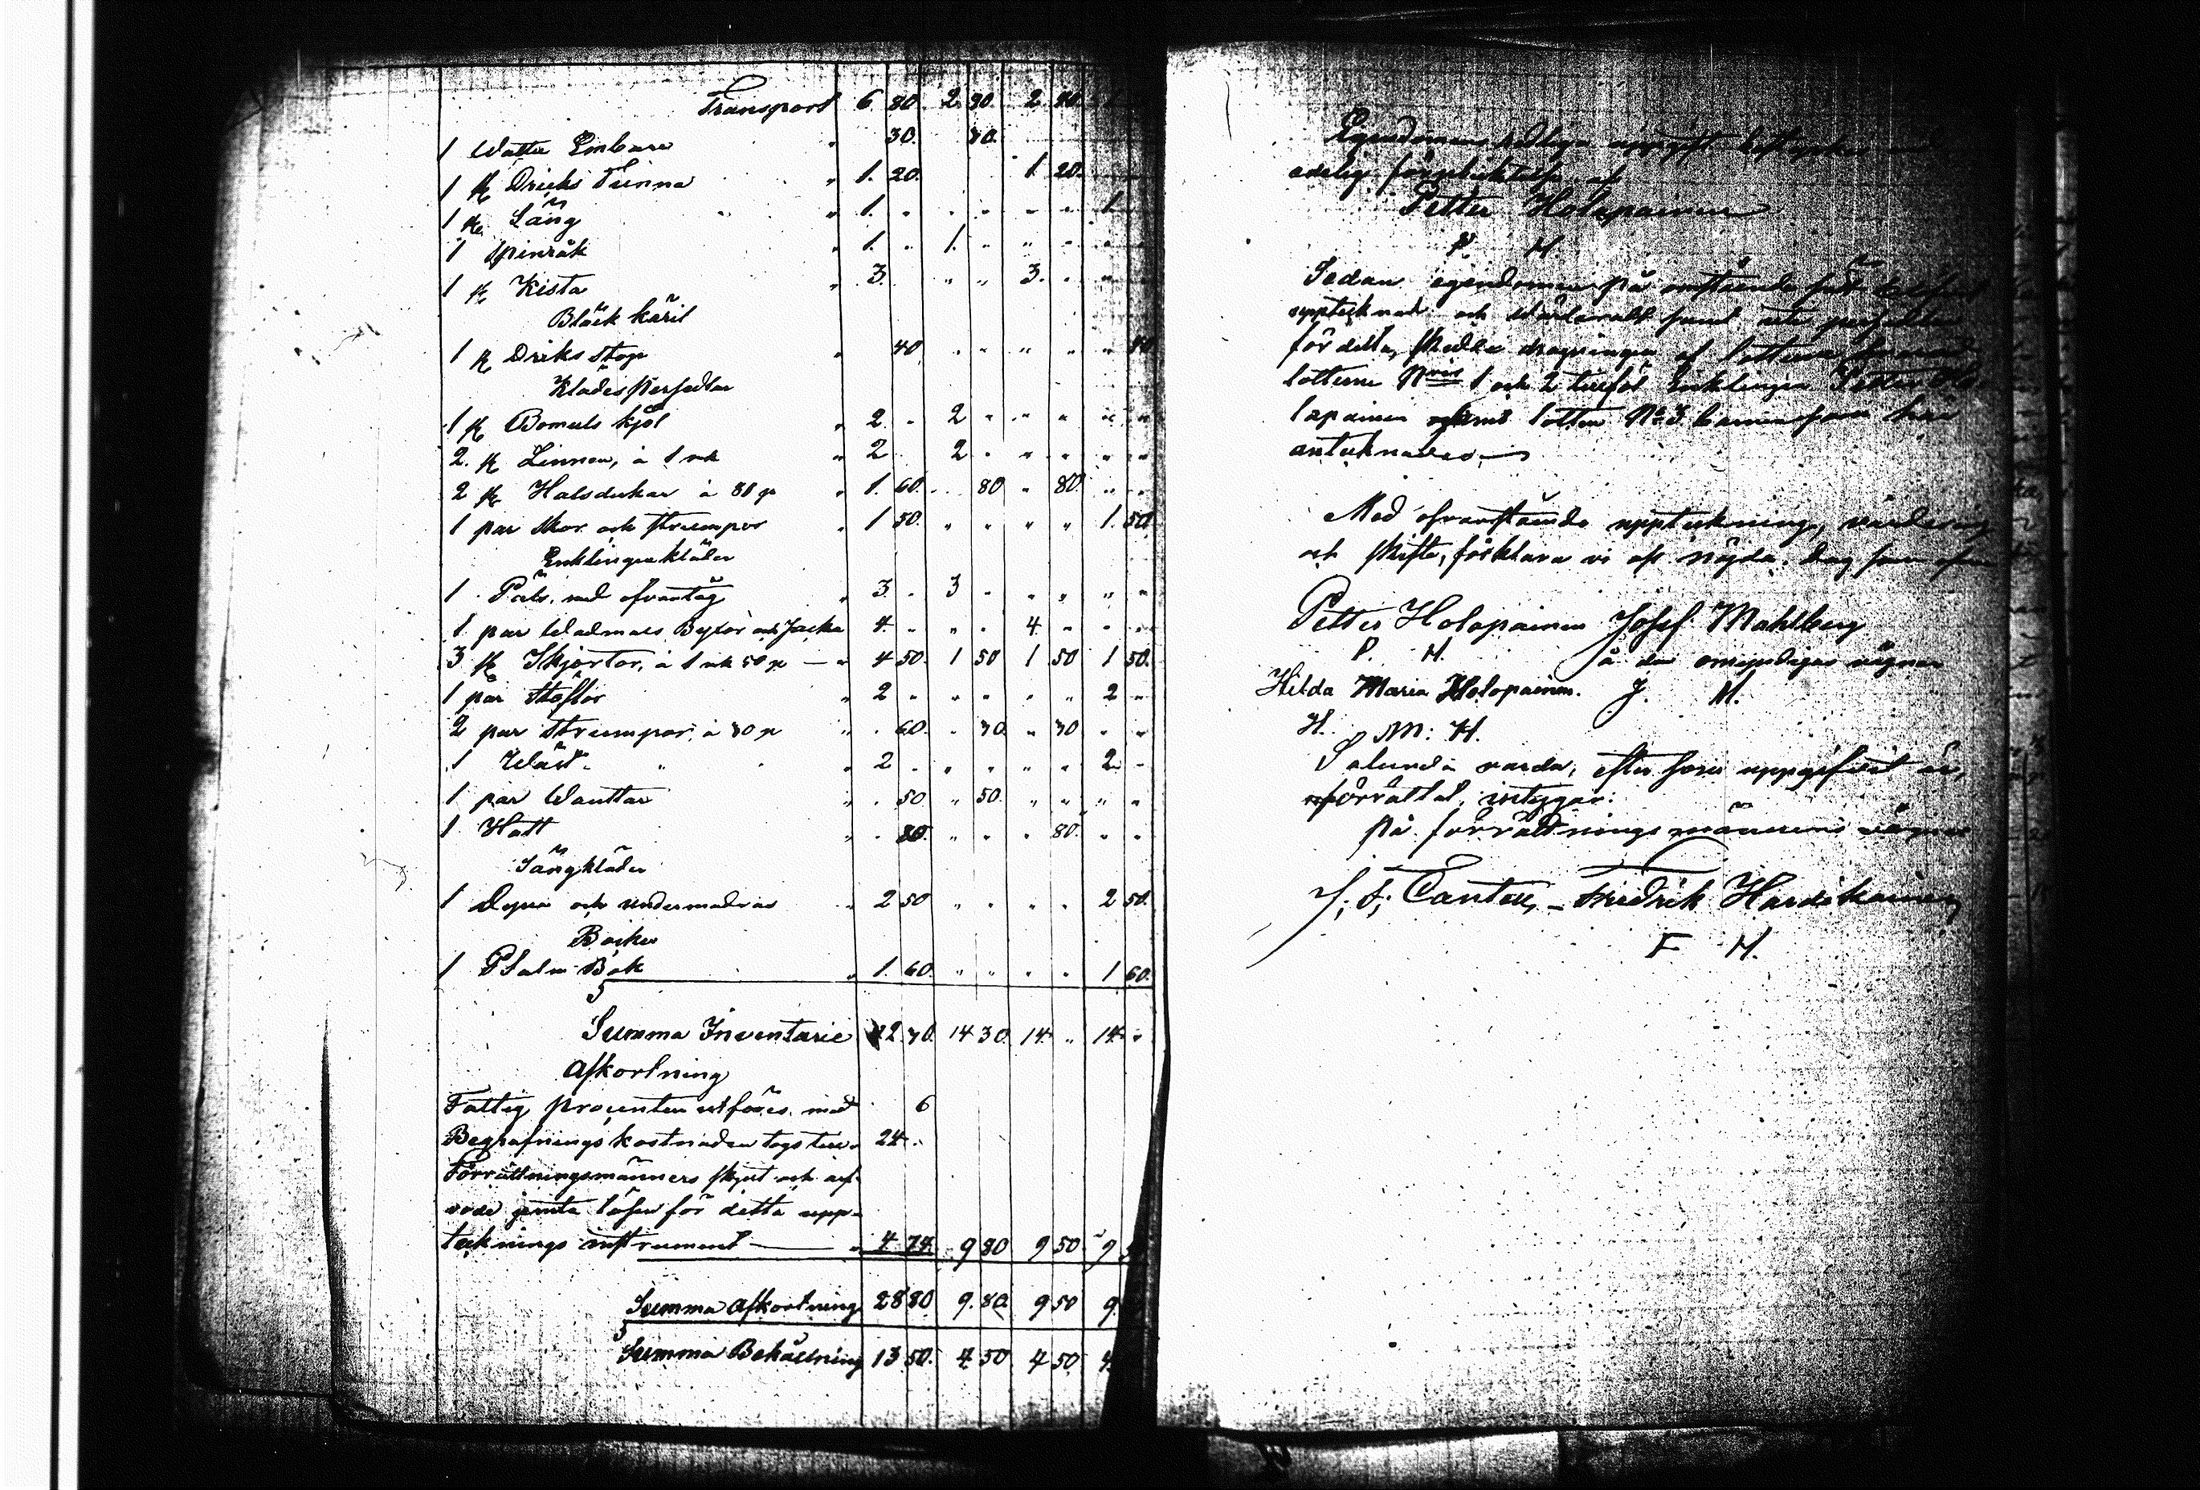 Transport 6 80 2 80 2 80
1 Watte Embare " 30 30
1 st Dricks Tunna " 1. 20. 1. 20.
1 st. Säng " 1. " " " " " 1
1 Spinråk " 1. " 1. " " " "
1 st Kista " 3. " " 3. " "
Bläck käril
1 st Driks stop " 40 " " " " " 40
Klädes Persedlar
1 st Bomuls kjol " 2 " 2 " " " " "
2 st Linnen, à 1 mk " 2 2 " " " " "
2 st Halsdukar à 80 p " 1. 60. 80 " 80 " "
1 par skor och strumpor " 1 50. " " " " 1. 50
Enklingens kläder
1 Päls, med ofvantyg " 3 " 3 " " " " "
1 par Wadmals Byxor och Jacka 4. " " " 4 " " "
3 st Skjortor, à 1 mk 50 p — " 4 50. 1 50 1 50 1 50.
1 par Stöflor " 2 " " " " " 2 "
2 par strumpor, à 30 p " . 60. " 30. " 30 " "
1 Wäst " " 2 " " " " " 2 "
1 par Wanttar " . 50 " 50. " " " "
1 Hatt " . 80. " " " 80. " "
Sängkläder
1 Dyna och undermadras " 2 50 " " " " 2 50.
Böcker
1 Psalm Bok " 1. 60. " " " " 1 60.
Summa Inventarie 42 30. 14 30. 14 " 14 "
Afkortning
Fattig procenten utföres med 6
Begrafnings kostnaden togs till " 24 "
Förrättningsmänners skjut och arf-
vode jemte lösen för detta upp-
tecknings instrument — " 4 74. 9 80 9 50 9
Summa Afkortning 28 80 9. 80. 9 50 9
Summa Behållning 13 50. 4 50 4 50 4
Egendomens redliga uppgift
edelig förpliktelse af
Petter Holopainen
P. H.
Sedan egendomen på ofvanstående sätt
upptecknat och värderatt samt
för detta, skedde dragningen af lotterne
lotterne Nris 1 och 2 tillföl Enklingen Petter Ho
lopainen samt lotten No 3. barnen som här
antecknades —
Med ofvanstående uppteckning, värdering
och skifte, förklara vi oss nöjda. Dag som ofvan
Petter Holopainen Josef Mahlberg
P. H. å de omyndigas vägnar
Hilda Maria Holopainen. J. M.
H. M: H.
Salunda varda, efter som uppgifvit är,
förrättat, intygar:
På förrättningsmännens vägnar
J. F. Cantell, — Fredrik Hardikainen
F H.